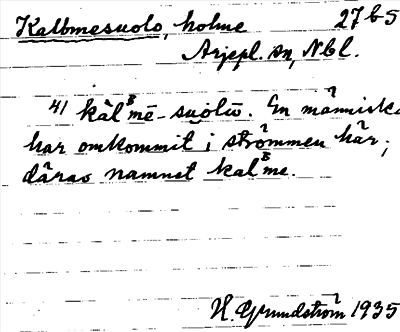 Kalbmesuolo, holme 27b5
Arjepl. sn, Nbl.
41 kàlᴮmē-suolū. En människa
har omkommit i strömmen här;
därav namnet kalᴮme.
H. Grundström 1935